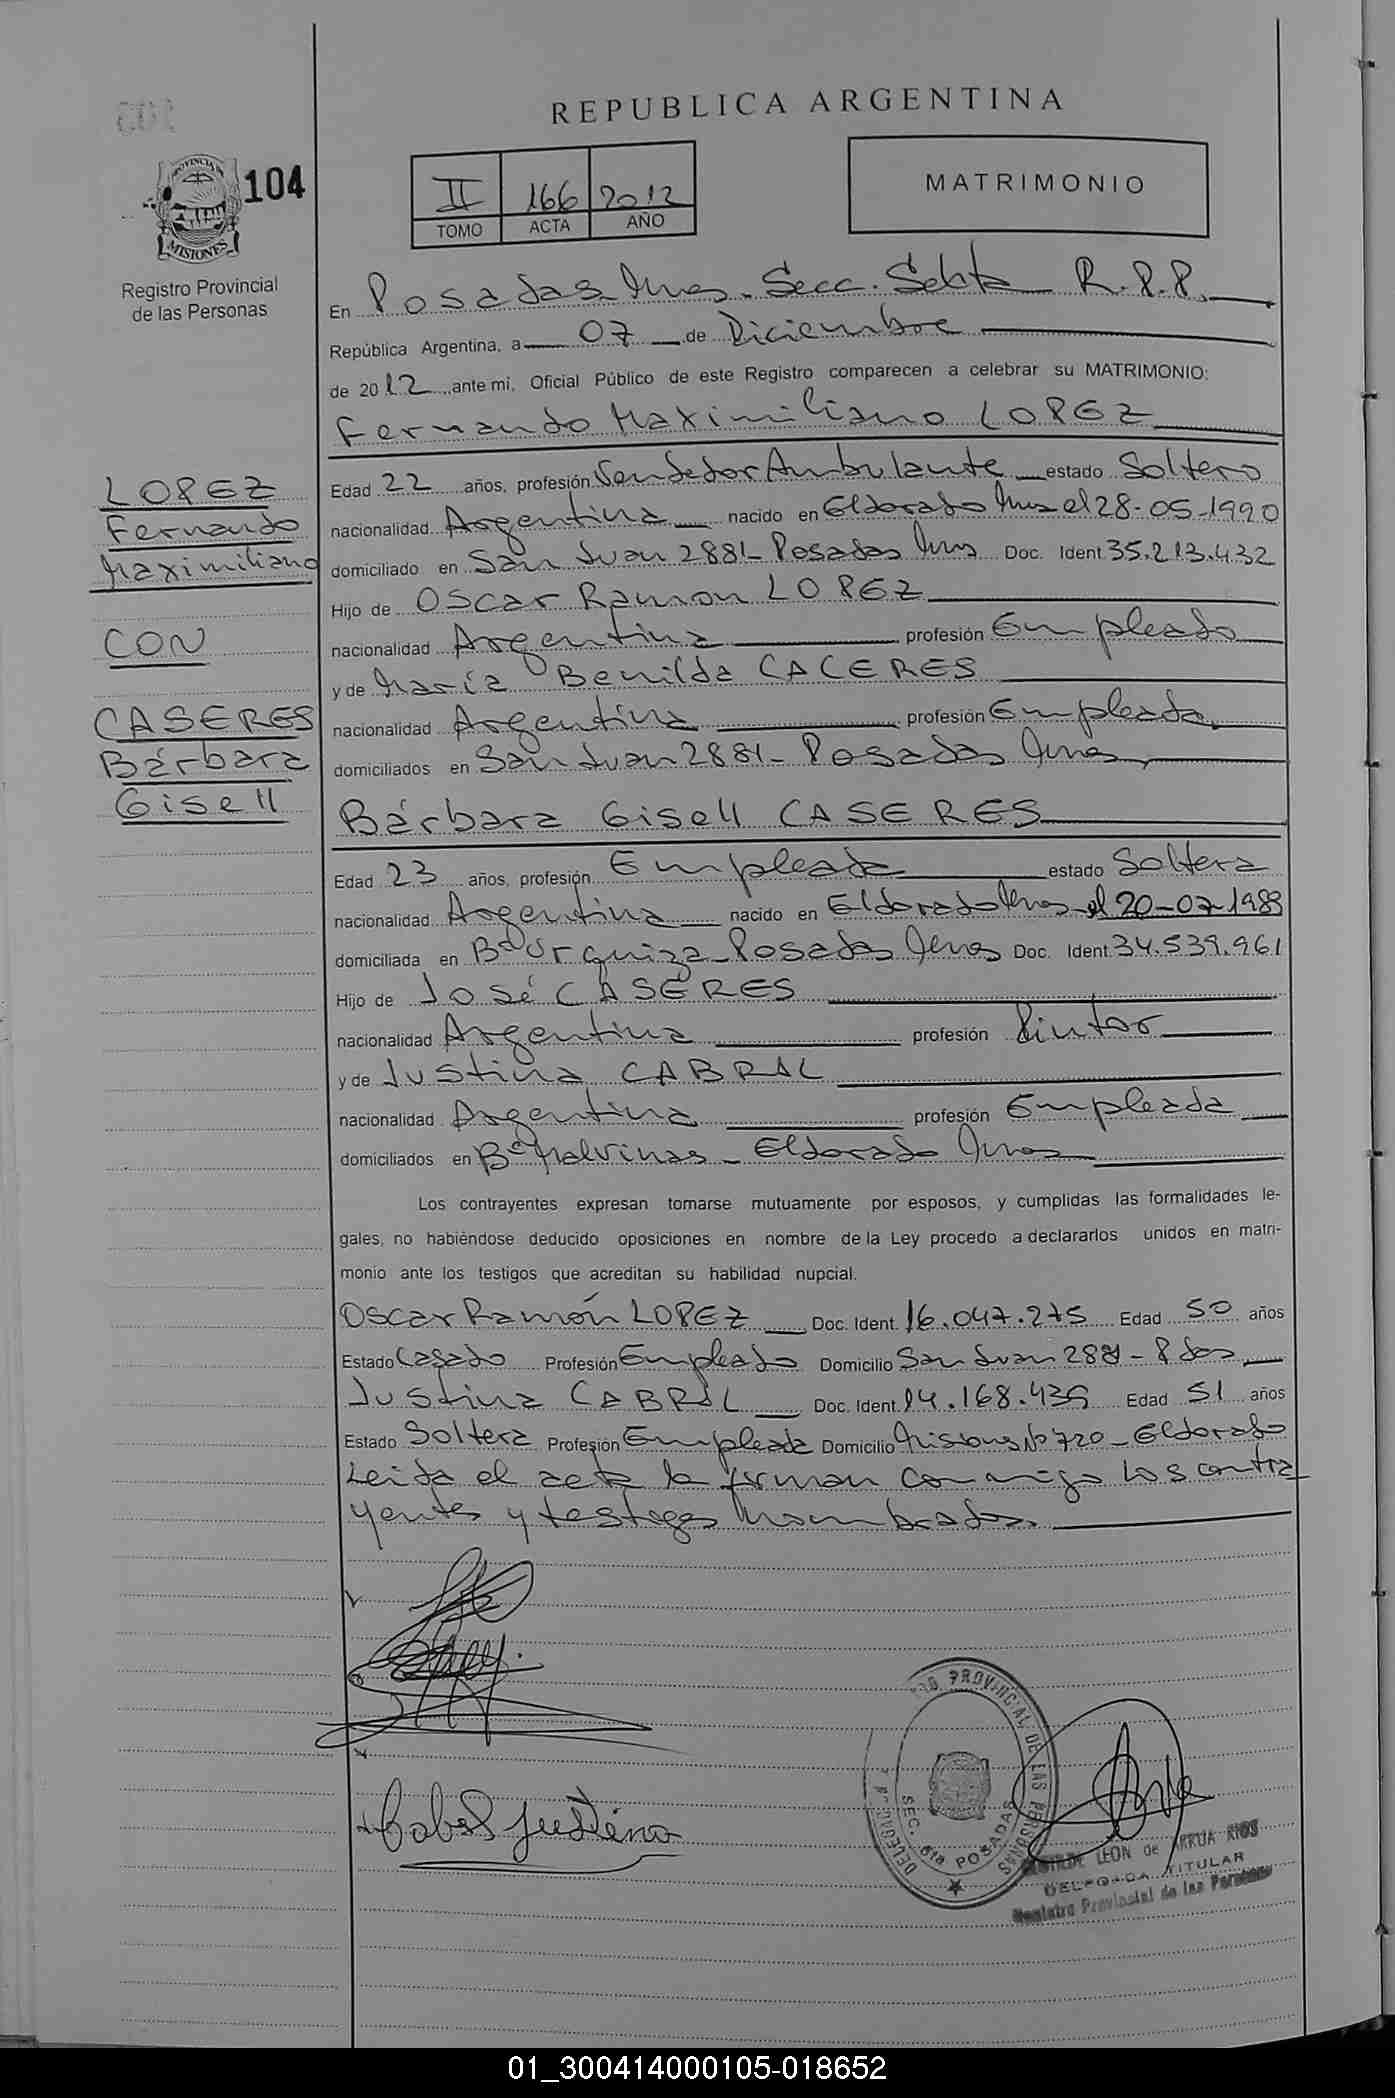 REPUBLICA ARGENTINA
104
PROVINCIA DE
MISIONES
Registro Provincial
de las Personas
II 166 2012
TOMO ACTA AÑO
MATRIMONIO
En Posadas Mnes. Secc. Sexta R.P.P.
República Argentina, a 07 de Diciembre
de 2012 ante mi, Oficial Público de este Registro comparecen a celebrar su MATRIMONIO:
Fernando Maximiliano LOPEZ
LOPEZ
Fernando
Maximiliano
CON
CASERES
Bárbara
Gisell
Edad 22 años, profesión Vendedor Ambulante estado Soltero
nacionalidad Argentina nacido en Eldorado Mnes el 28-05-1990
domiciliado en San Juan 2881- Posadas Mnes Doc. Ident. 35.213.432
Hijo de Oscar Ramon LOPEZ
nacionalidad Argentina profesión Empleado
y de María Benilda CACERES
nacionalidad Argentina profesión Empleada
domiciliados en San Juan 2881- Posadas Mnes
Bárbara Gisell CASERES
Edad 23 años, profesión Empleada estado Soltera
nacionalidad Argentina nacido en Eldorado Mnes el 20-07-1989
domiciliada en Bº Urquiza - Posadas Mnes Doc. Ident. 34.539.961
Hijo de José CASERES
nacionalidad Argentina profesión Pintor
y de Justina CABRAL
nacionalidad Argentina profesión Empleada
domiciliados en Bº Malvinas - Eldorado Mnes
Los contrayentes expresan tomarse mutuamente por esposos, y cumplidas las formalidades le-
gales, no habiéndose deducido oposiciones en nombre de la Ley procedo a declararlos unidos en matri-
monio ante los testigos que acreditan su habilidad nupcial.
Oscar Ramón LOPEZ Doc. Ident. 16.047.275 Edad 50 años
Estado Casado Profesión Empleado Domicilio San Juan 2881 - Pdas
Justina CABRAL Doc. Ident. 14.168.439 Edad 51 años
Estado Soltera Profesión Empleada Domicilio Misiones Nº 720 - Eldorado
Leida el acta la firman conmigo los contra
yentes y testigos nombrados.
Cabral Justina
PROVINCIAL DE LAS PERSONAS
SEC. 6ta POSADAS
LEON de ARRUA RIOS
DELEGADA TITULAR
Registro Provincial de las Personas
01_300414000105-018652